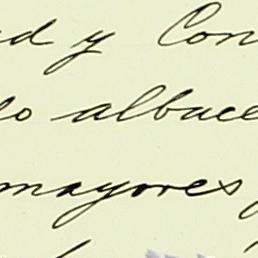 d y Con
lo albace
mayores